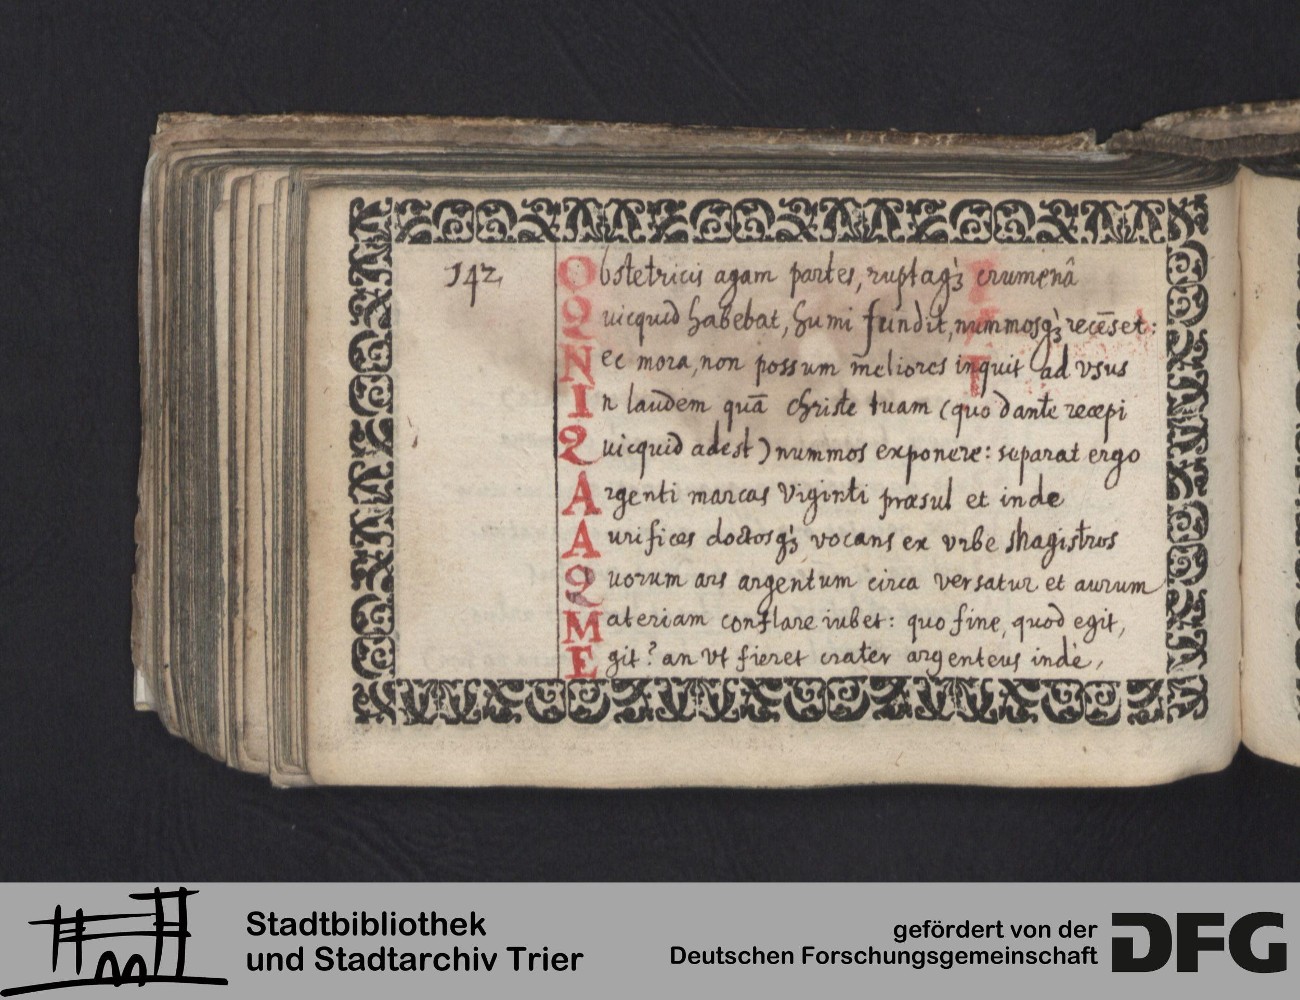 142
Obstetricis agam partes, ruptaq; crumenâ
Quicquid habebat, humi fundit, nummosq; recēset:
Nec mora, non possum meliores inquit ad vsus
In laudem quā Christe tuam (quo dante recepi
Quicquid adest) nummos exponere: separat ergo
Argenti marcas viginti præsul et inde
Aurifices doctosq; vocans ex vrbe Magistros
Quorum ars argentum circa versatur et aurum
Materiam conflare iubet: quo fine, quod egit,
Egit? an vt fieret crater argenteus inde,
Stadtbibliothek
und Stadtarchiv Trier
gefördert von der
Deutschen Forschungsgemeinschaft
DFG